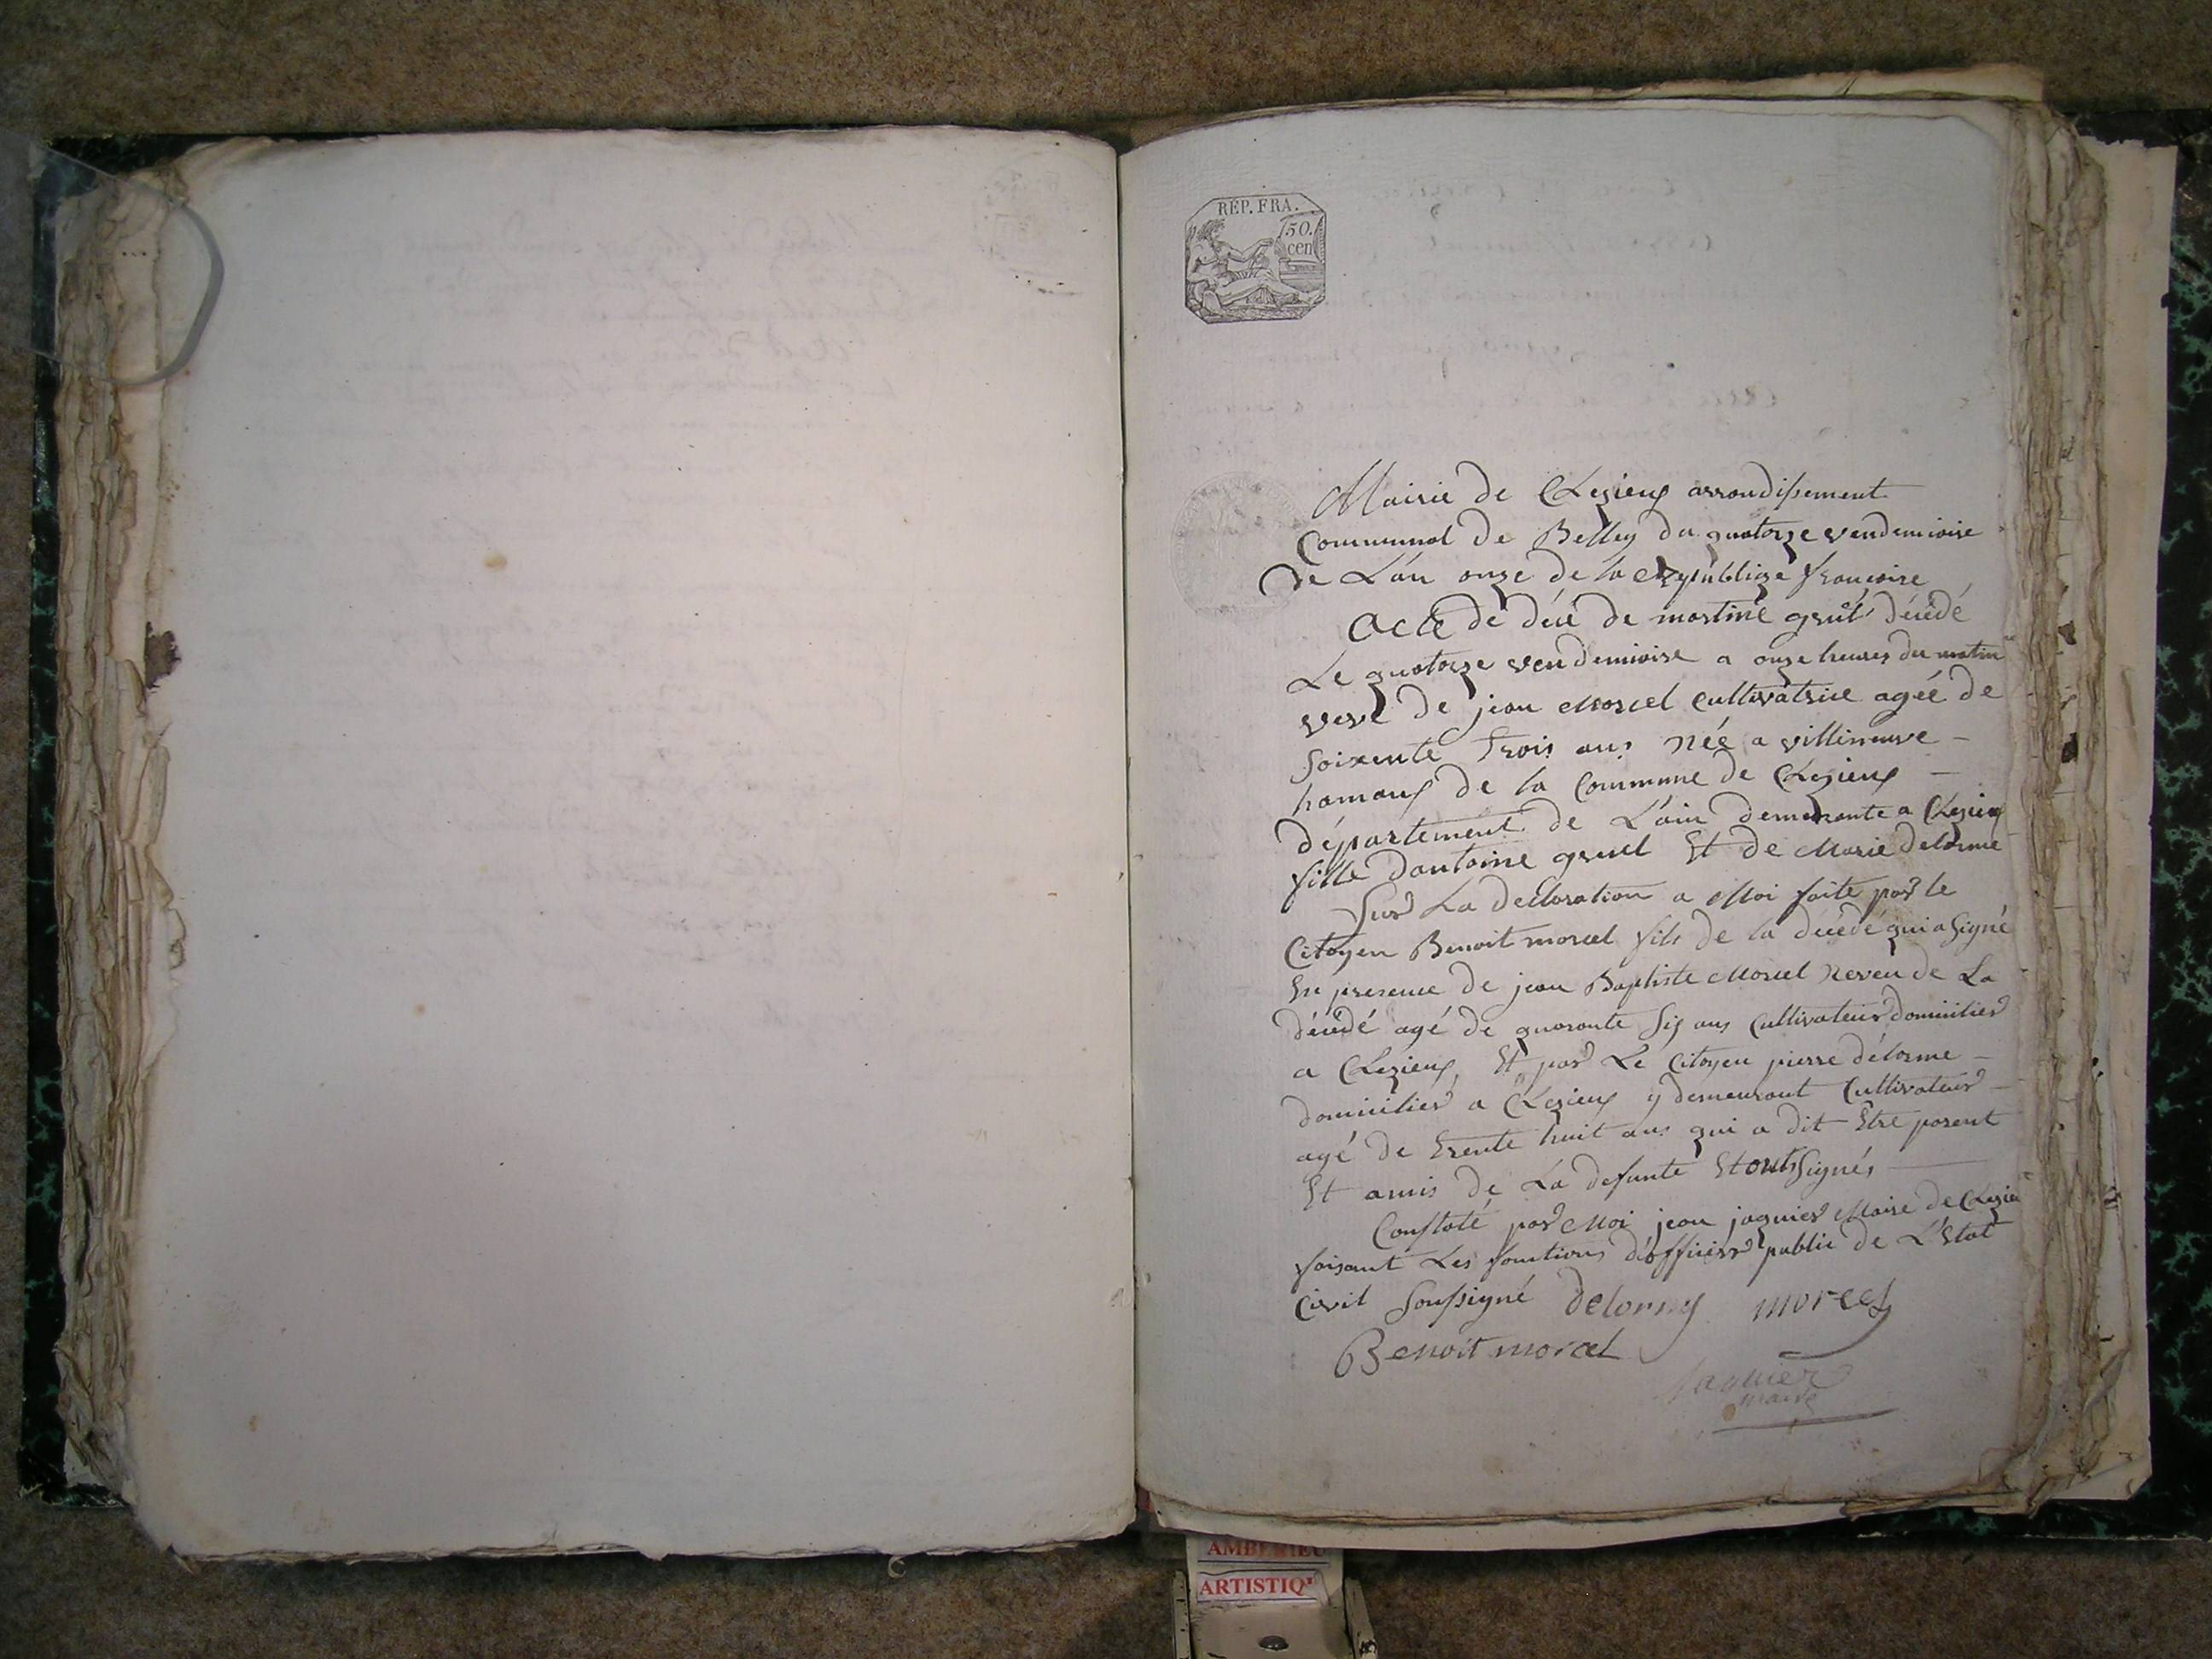 RÉP. FRA.
50.
cen
Mairie de Clezieux arrondissement
Communal de Belley du quatorze vendemiaire
de L'an onze de la republiqe francaise
Acte de décé de martine grut décédé
Le quatorze vendemiaire a onze heures du matin
veve de jean Morcel cultivatrice agée de
soixente trois ans née a villeneuve -
hamaux de la Commune de Clezieux -
département de L'ain demeurante a Clezieux
fille dantoine gruel Et de Marie delorme
Sur La declaration a Moi faite par le
Citoyen Benoit morcel fils de la décédé qui a Signé
En presence de jean Baptiste Morcel Neveu de La
décédé agé de quaronte Six ans Cultivateur domicilier
a Clezieux, Et par Le Citoyen pierre délorme -
domicilier a Clezieux y demeurant Cultivateur -
agé de trente huit ans qui a dit Etre parent
Et amis de La defunte Et onts Signés
Constaté par Moi jean jaquier Maire de Clezieu
faisant Les fonctions d'officier public de L'Etat
Civil Soussigné delorme morcel
Benoit morcel
Jaquier
maire
AMBERIEU
ARTISTIQ